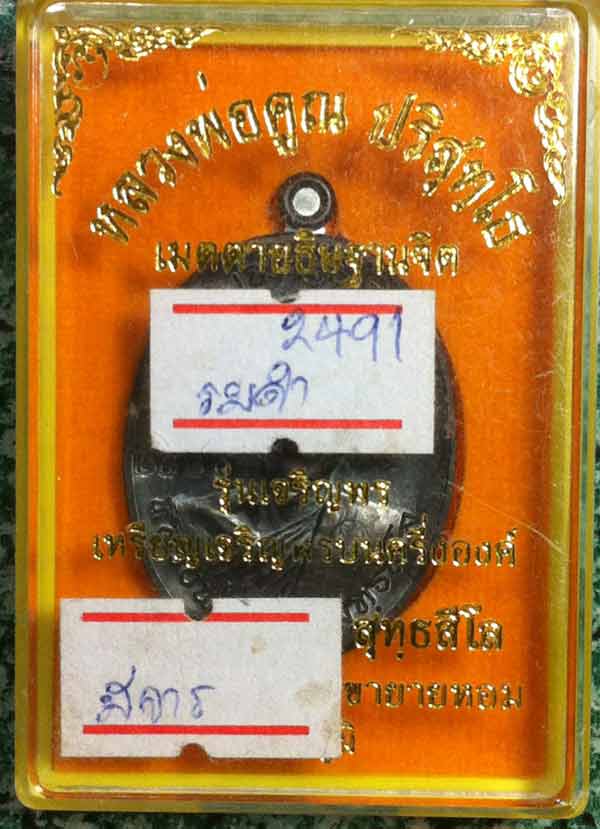 หลวงพ่อคูณ ปริสุทฺโธ
เมตตาอธิษฐานจิต
2491
รมดำ
รุ่นเจริญพร
เหรียญเจริญพรบนครึ่งองค์
สุทธสีโล
ขายายหอม